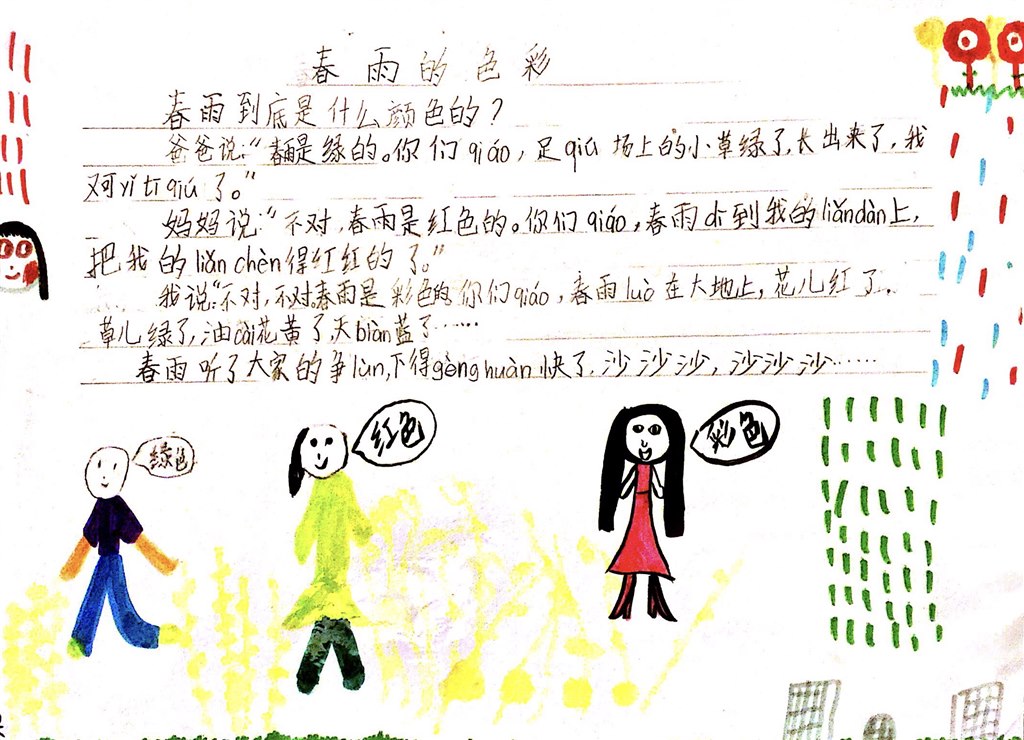 春雨的色彩
春雨到底是什么颜色的？
爸爸说：“春雨是绿的。你们qiáo，足qiú场上的小草绿了，长出来了，我
又可yǐ tī qiú了。”
妈妈说：“不对，春雨是红色的。你们qiáo，春雨dī到我的liǎndàn上，
把我的liǎn chèn得红红的了。”
我说：“不对，不对，春雨是彩色的，你们qiáo，春雨luò在大地上，花儿红了，
草儿绿了，油cài花黄了，天biàn蓝了……
春雨听了大家的争lùn，下得gèng huàn快了，沙沙沙，沙沙沙……
绿色
红色
彩色